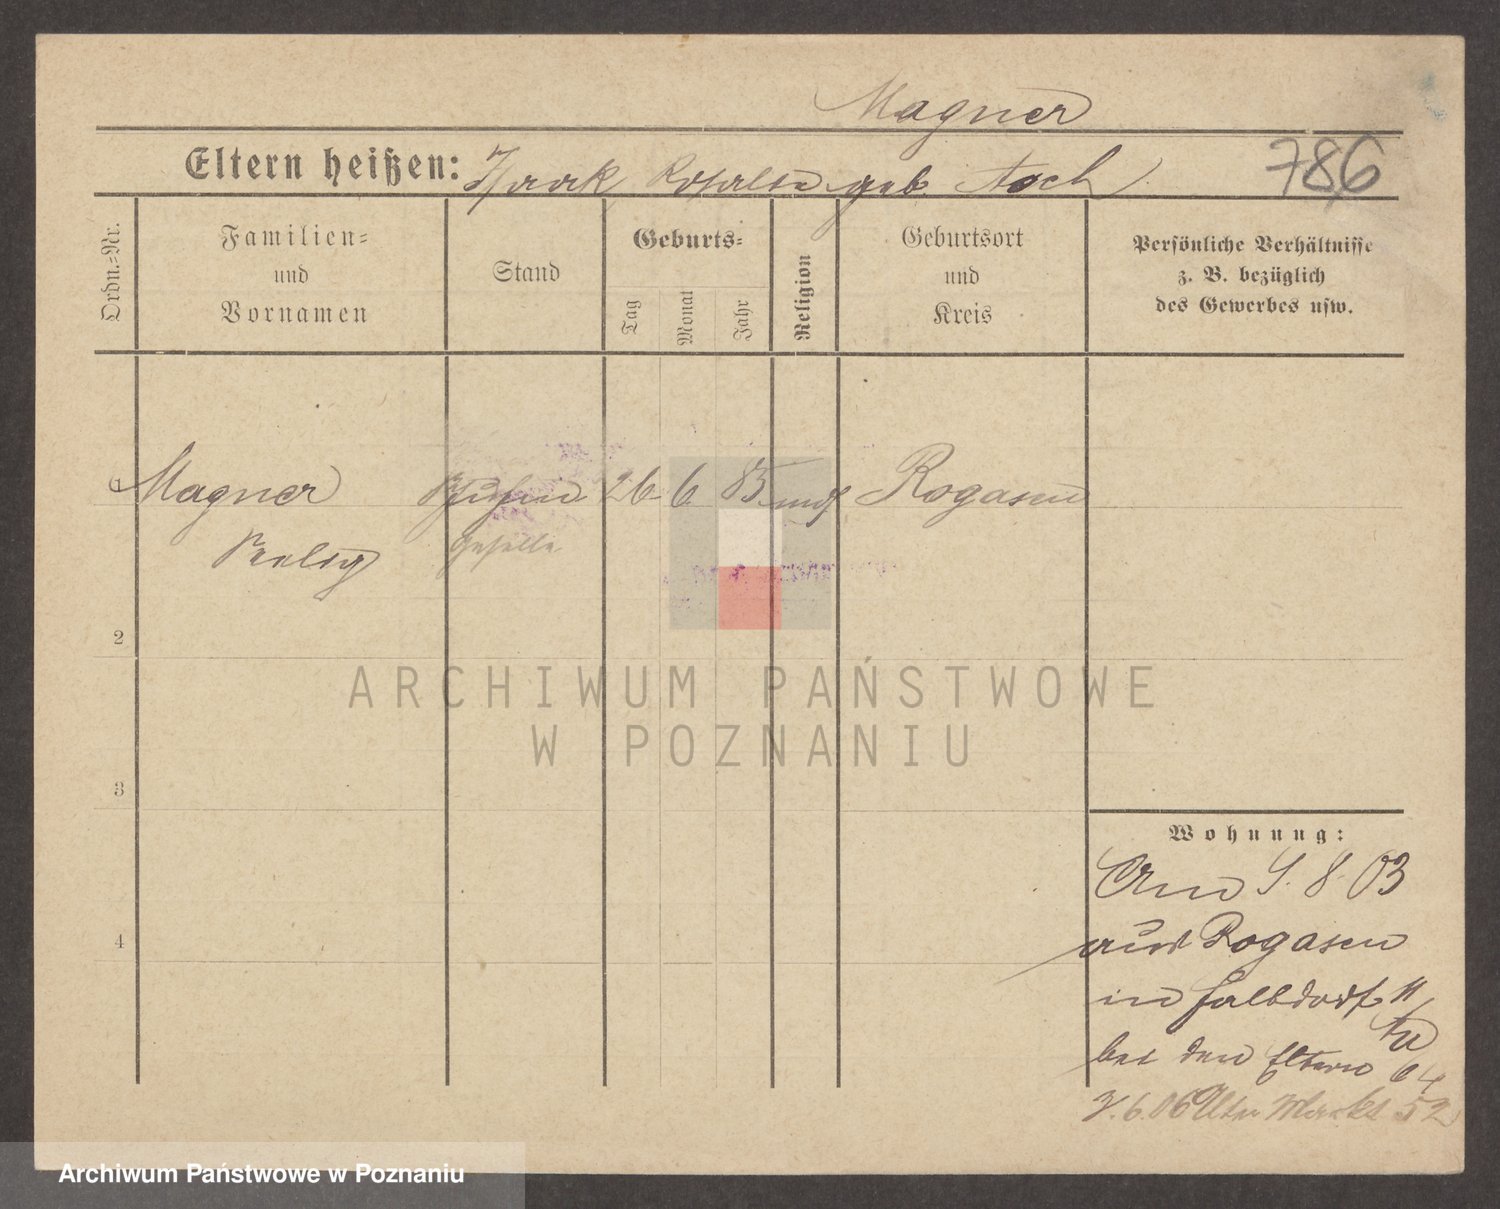 Magner
Eltern heißen: Isaak Rosalie geb. Asch
786
Ordn.=Nr.
Familien=
und
Vornamen
Stand
Geburts=
Tag
Monat
Jahr
Religion
Geburtsort
und
Kreis
Persönliche Verhältnisse
z. B. bezüglich
des Gewerbes usw.
1 Magner 26. 6. 85 mos Rogasen
Geselle
2
3
4
ARCHIWUM PAŃSTWOWE
W POZNANIU
Wohnung:
Am 8. 03
aus Rogasen
in Halbdorfst
bei den Eltern
6. 06 Alter Markt 52
Archiwum Państwowe w Poznaniu